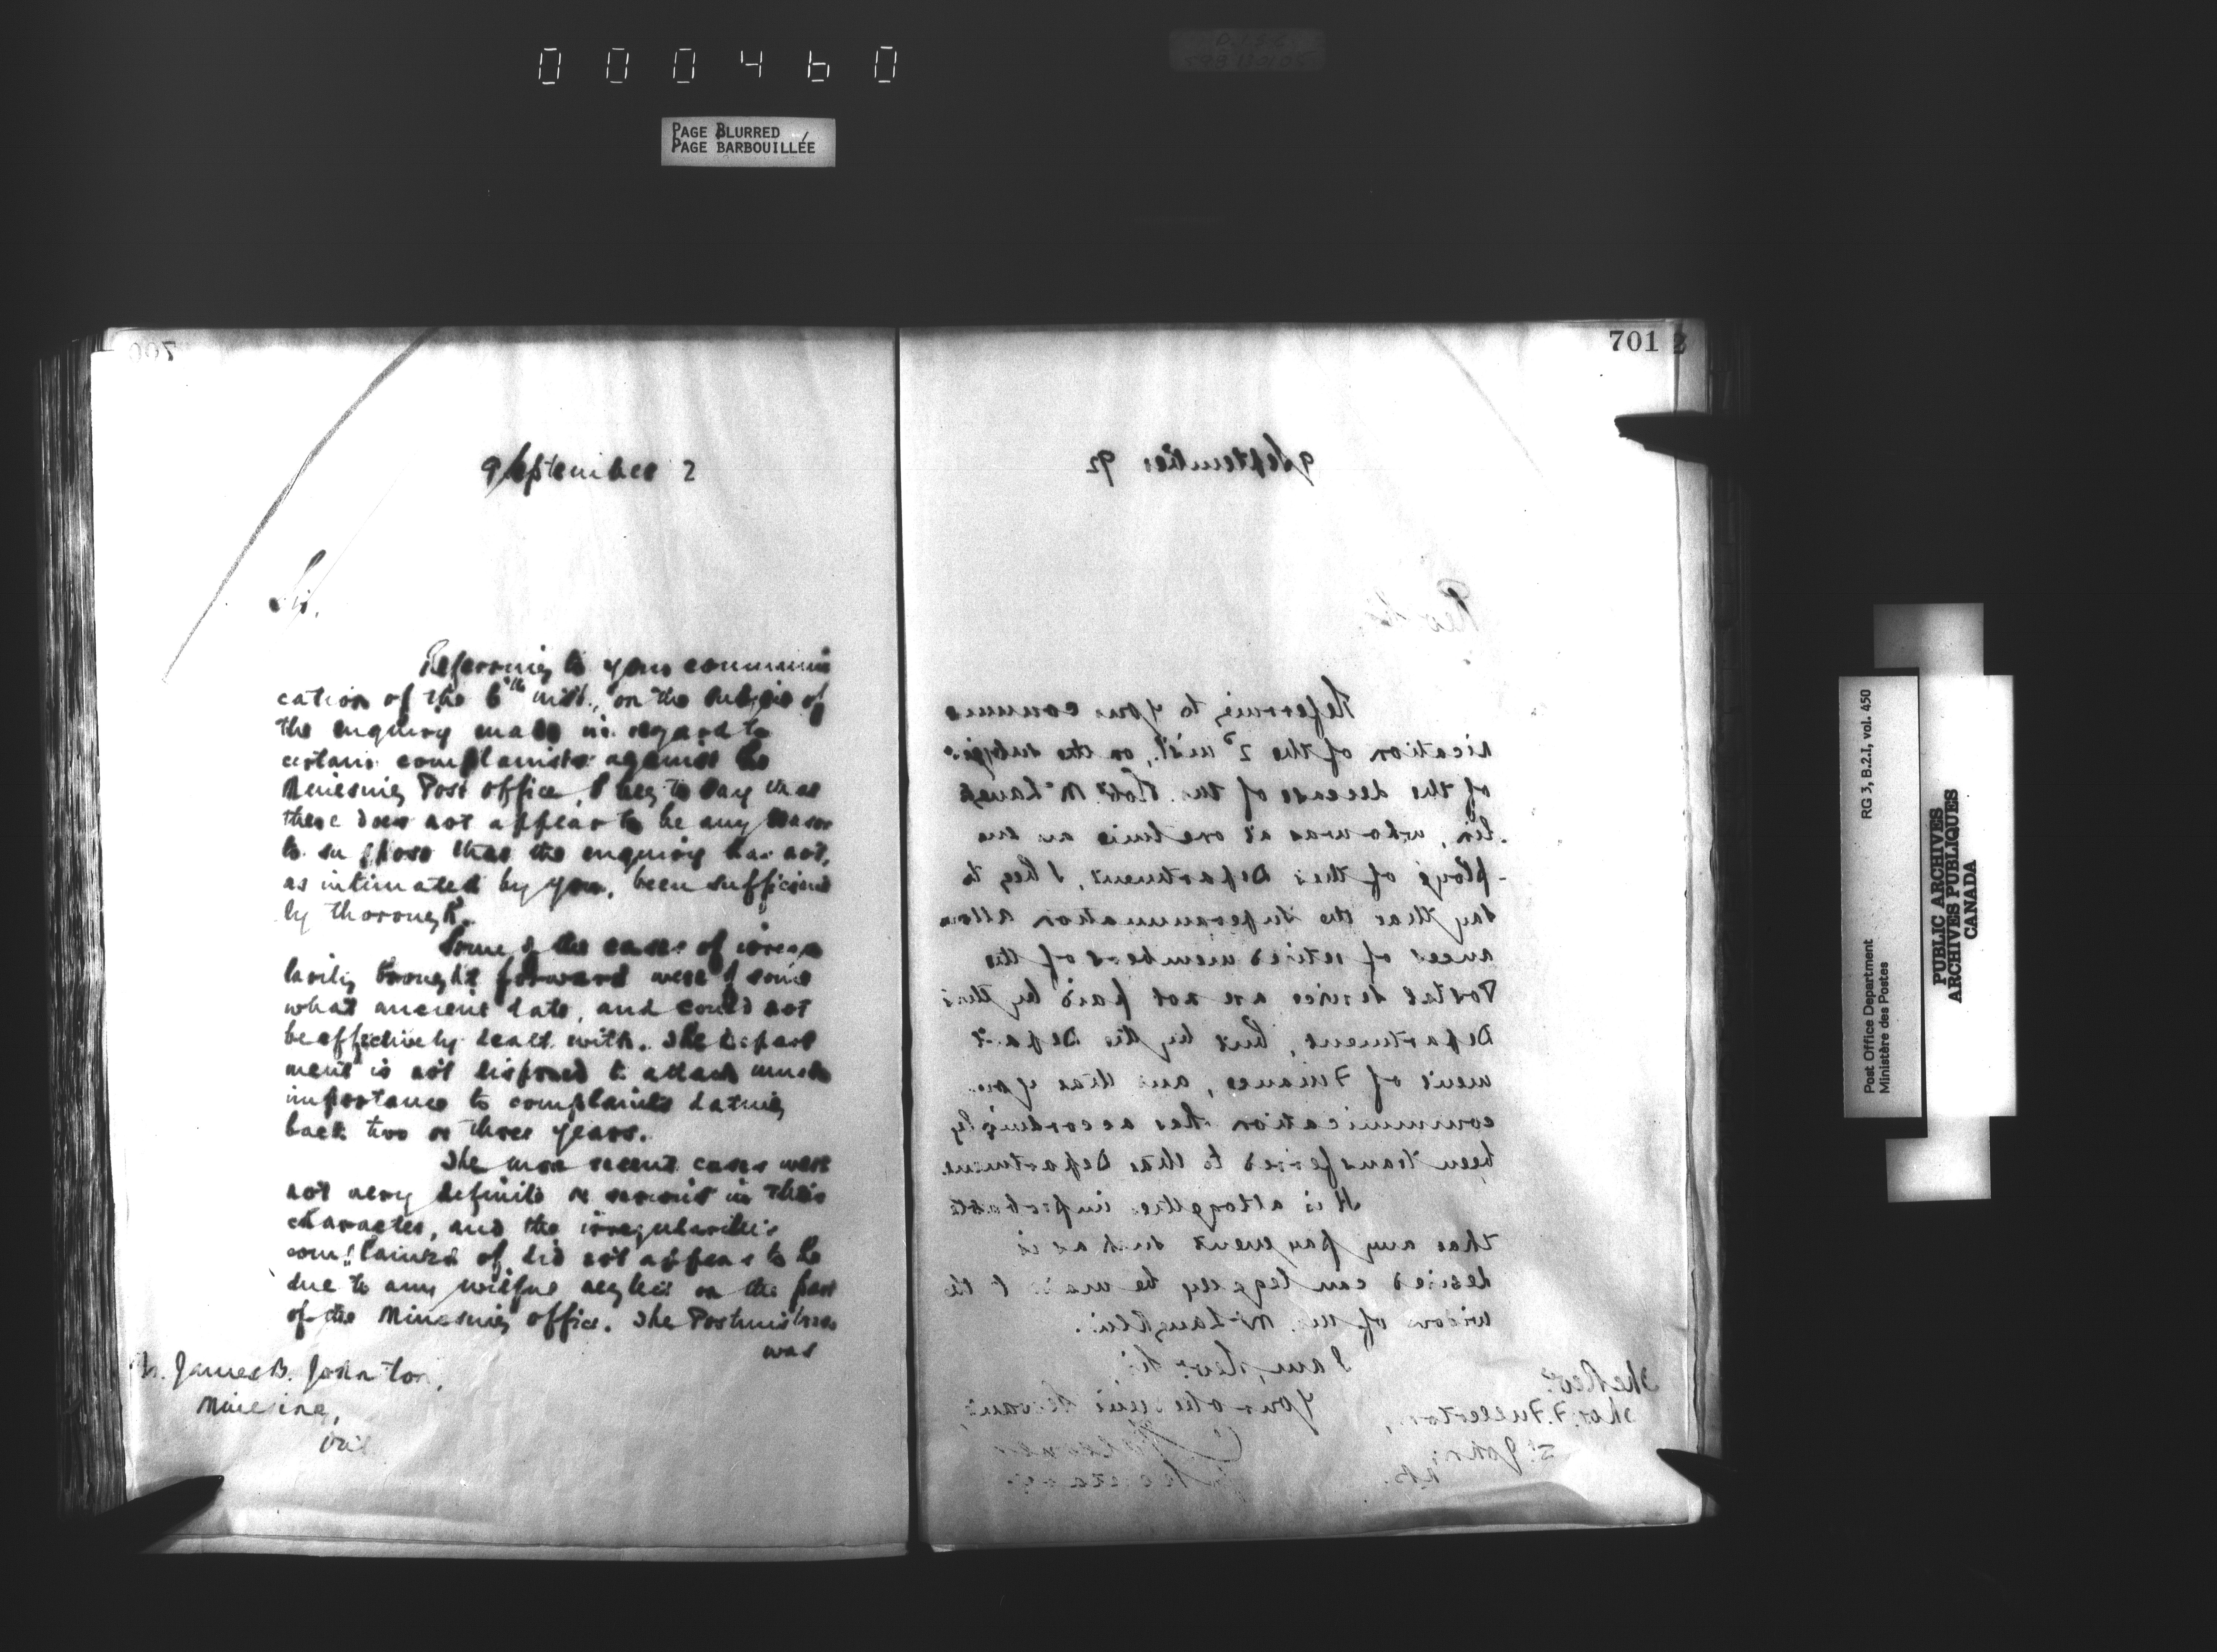 000460
PAGE BLURRED
PAGE BARBOUILLÉE
700
9 September 2
Sir,
Referring to your communi
cation of the 6th inst., on the subject of
the enquiry made in regard to
certain complaints against the
Minesing Post office, I beg to say that
there does not appear to be any reason
to suppose that the enquiry has not,
as intimated by you, been sufficient
ly thorough.
Some of the cases of irregu
larity brought forward were of some
what ancient date, and could not
be effectively dealt with. The Depart
ment is not disposed to attach much
importance to complaints dating
back two or three years.
The more recent cases were
not very definite or serious in their
character, and the irregularities
complained of did not appear to be
due to any wilful neglect on the part
of the Minesing office. The Postmistress
was
James B. Johnston,
Minesing,
Ont
701
9 September 92
Rev. Sir,
Referring to your commu
nication of the 2d inst., on the subject
of the decease of Mr. Robt. McLaugh
lin, who was at one time an em
ploye of this Department, I beg to
say that the Superannuation allow
ances of retired members of the
Postal Service are not paid by this
Department, but by the Depart
ment of Finance, and that your
communication has accordingly
been transferred to that Department.
It is altogether improbable
that any payment such as is
desired can legally be made to the
widow of Mr. McLaughlin.
I am, Rev. Sir,
Your obedient Servant,
Secretary.
The Revd.
Thos. F. Fullerton,
St. John,
N.B.
Post Office Department RG 3, B.2.I, vol. 450
Ministère des Postes
PUBLIC ARCHIVES
ARCHIVES PUBLIQUES
CANADA